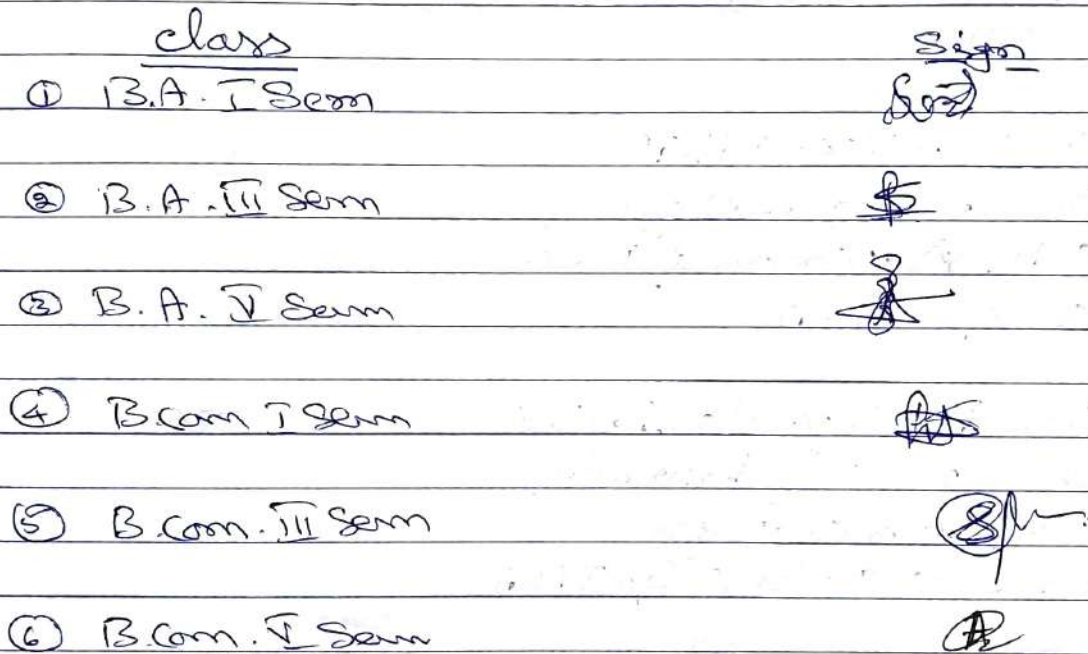 Class Sign
① B.A. I Sem
② B.A. III Sem
③ B.A. V Sem
④ B.com I Sem
⑤ B.com. III Sem
⑥ B.Com. V Sem